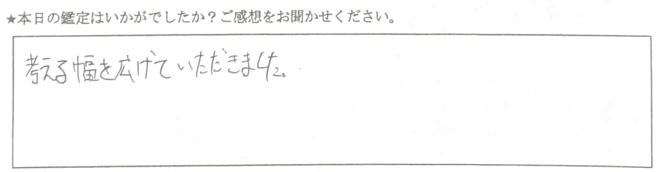 ★本日の鑑定はいかがでしたか?ご感想をお聞かせください。
考える幅を広げていただきました。